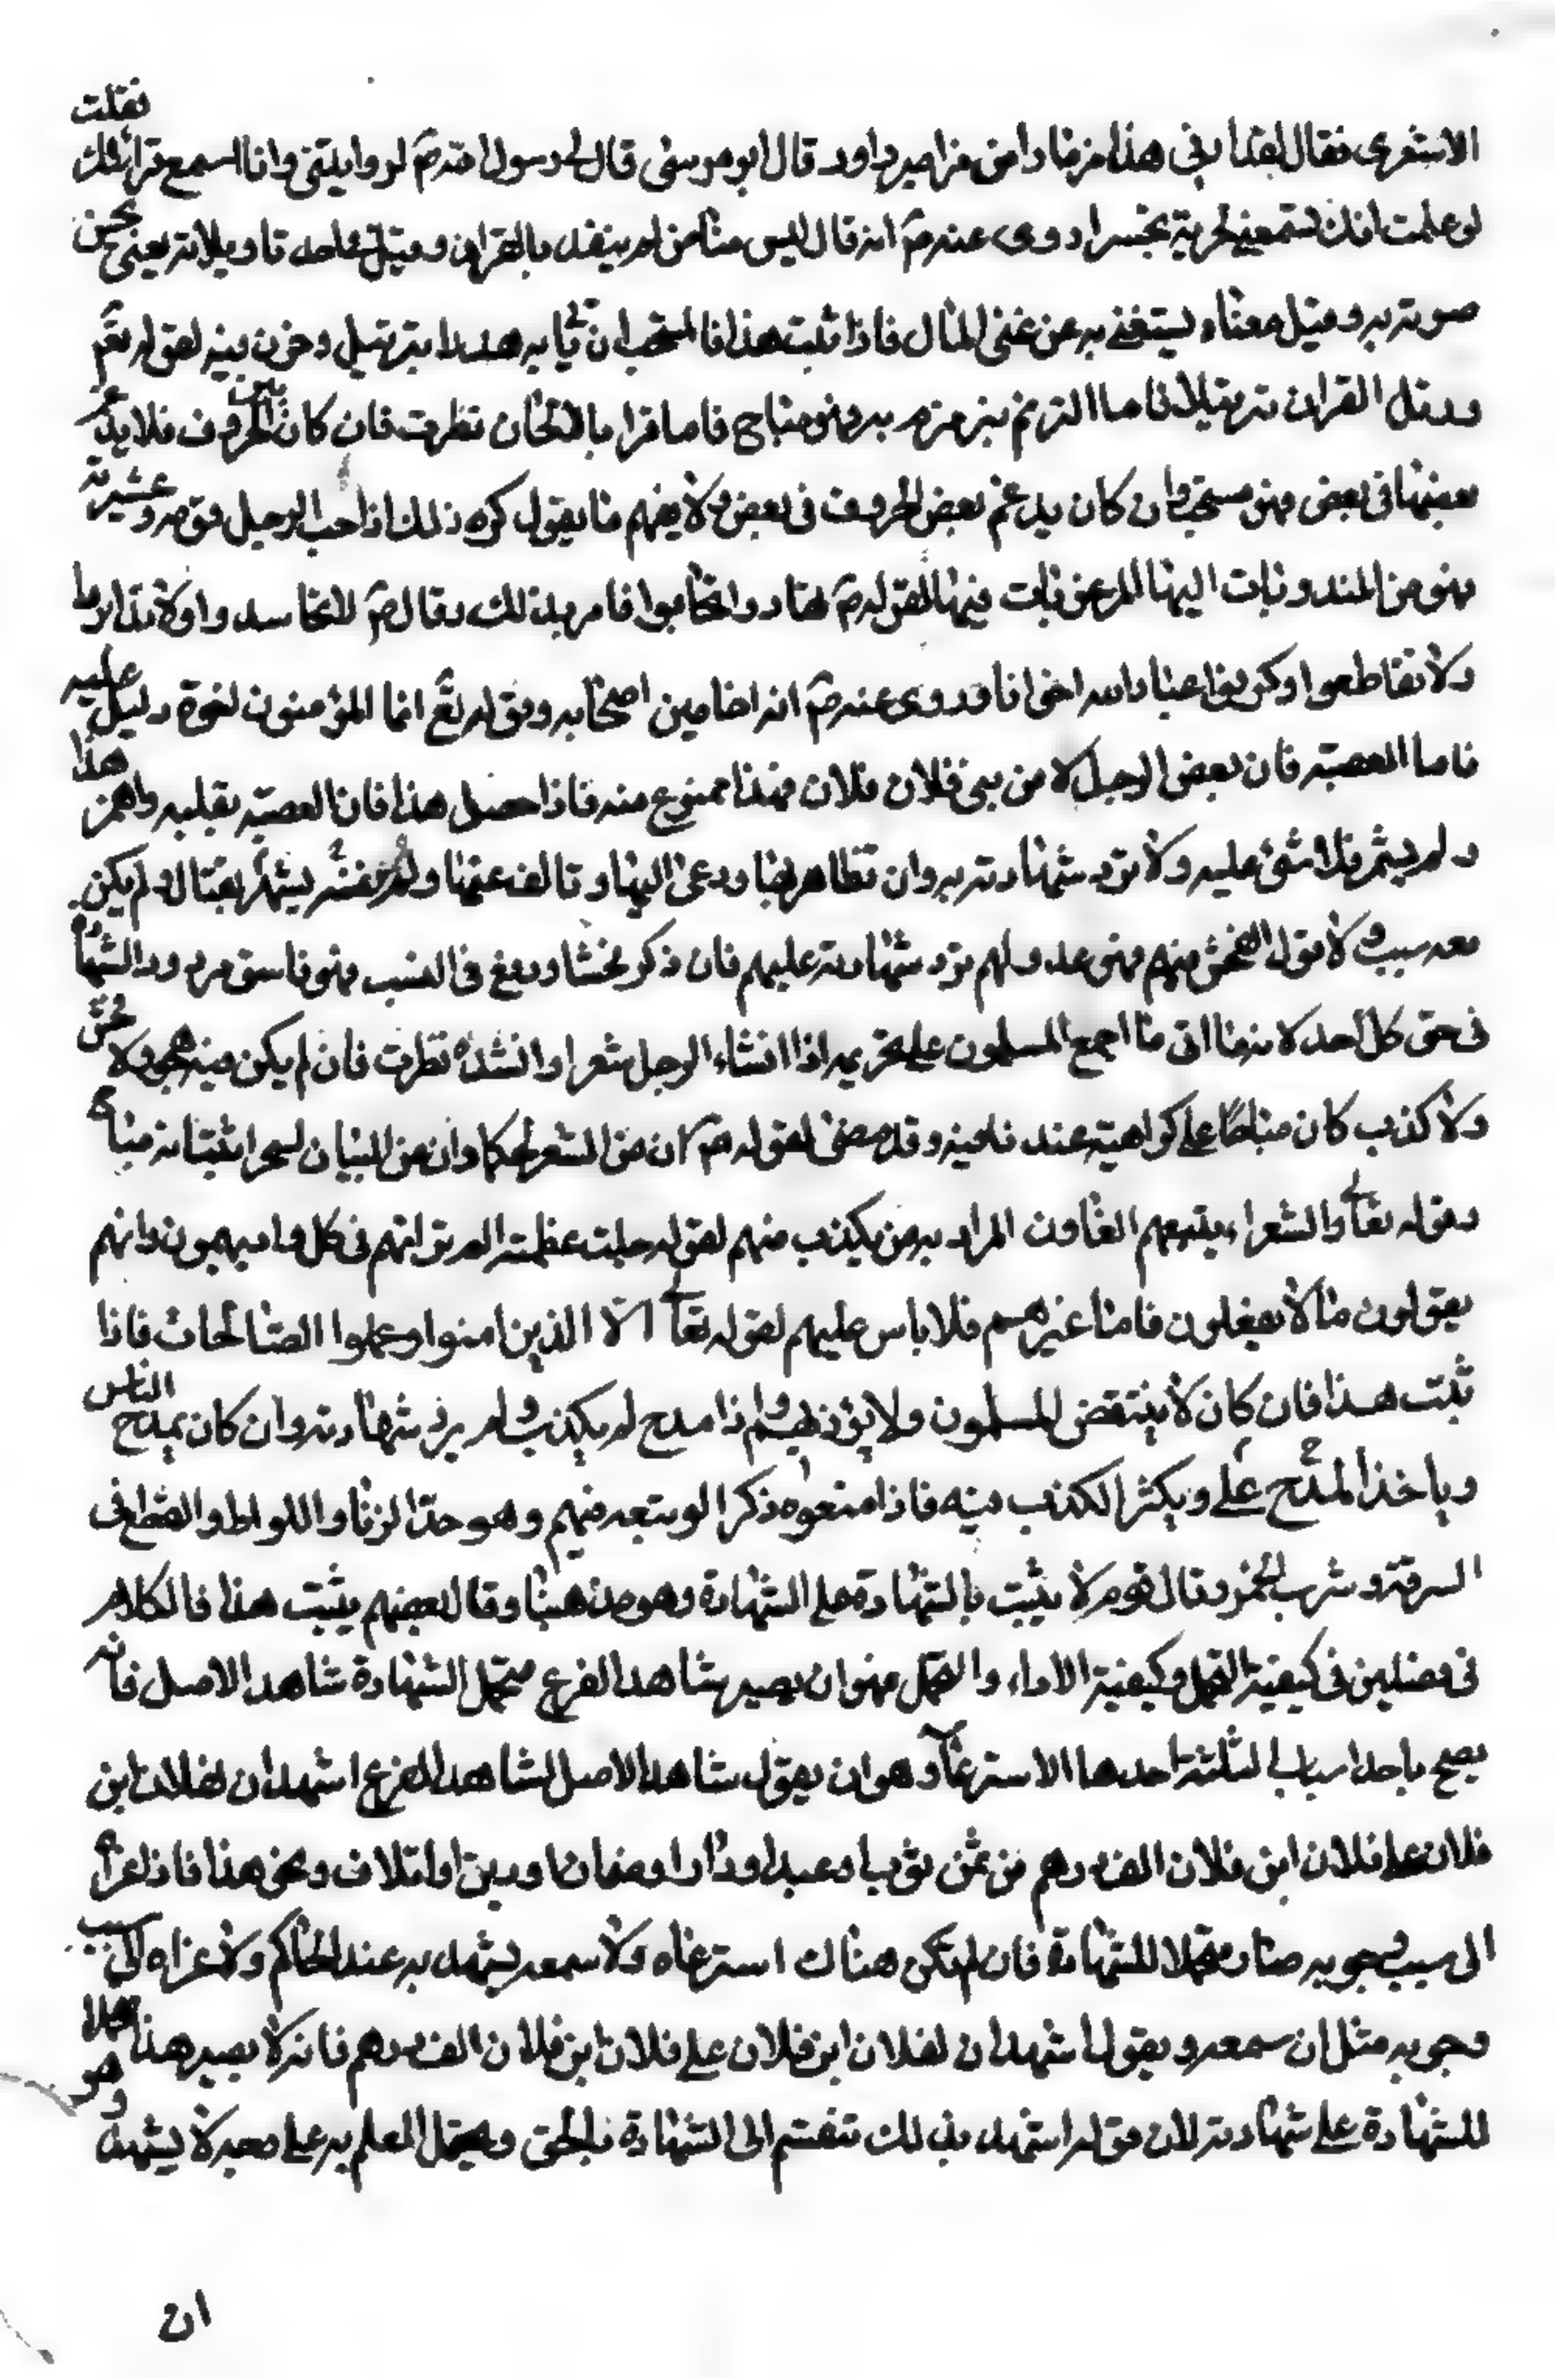 الاشعرى فقال لقد اوتى هذا مزمارا من مزامير داود قال ابو موسى قال لى رسول الله صم لو رايتنى وانا اسمع قرائتك فقلت
لو علمت انك تستمع لحبرته تحبيرا وروى عنه صم انه قال ليس منا من لم يتغن بالقران وقيل فى احد تاويلاته يعنى يحسن
صوته به وقيل معناه يستغنى به عن غنى المال فاذا ثبت هذا فالمستحب ان ياتى به هدرا بترتيل وحزن فيه لقوله تعم
ورتل القران ترتيلا فاما الترنم بزمزمه به فهو مباح فاما اقرا بالالحان نظرت فان كان يبين الحروف فلا يدغم
بعضها فى بعض فهو مستحب وان كان يدغم بعض الحروف فى بعض ولا يفهم ما يقول كره ذلك اذا احب الرجل قومه وعشيرته
فهو من المندوبات اليها المرعوبات فيها لقوله صم تهادوا تحابوا فامر بذلك وقال صم لا تحاسدوا ولا تدابروا
ولا تقاطعوا وكونوا عباد الله اخوانا وروى عنه صم انه اخا بين اصحابه وقوله تعم انما المؤمنون اخوة دليل عليه
فاما العصبيه فان بعض الرجل لا من بنى فلان فلان فهذا ممنوع منه فاذا حصل هذا فان العصبيه بقلبه واضمر هذا
ولم يشر فلا شئ عليه ولا ترد شهادته به وان تظاهر بها ودعى اليها وتالف عنها ولم يفسر يشهر بقتال ولم يكن
معه سب ولا قول الفحش فيهم فهو عدولهم ترد شهادته عليهم فان ذكر فحشا ووقع فى السب فهو فاسق مردود الشهادة
فى حق كل احد لانه اتى ما اجمع المسلمون على تحريمه اذا انشاء الرجل شعرا وانشده نظرت فان لم يكن فيه هجو ولا فحش
ولا كذب كان مباحا على كراهية عندنا فيه وقد مضى لقوله صم ان من الشعر لحكما وان من البيان لسحرا ثبت انه مباح
وقوله تعالى والشعراء يتبعهم الغاون المراد به من يكذب منهم لقوله جلت عظمته الم تر انهم فى كل واد يهيمون وانهم
يقولون ما لا يفعلون فاما غيرهم فلا باس عليهم لقوله تعالى الا الذين امنوا وعملوا الصالحات فاذا
ثبت هذا فان كان لا ينتقص المسلمون ولا يؤذيهم واذا مدح لم يكذب ولم يرد شهادته وان كان يمدح الناس
وياخذ المدح على ويكثر الكذب فيه فاذا منعوه ذكر الوقيعه فيهم وهو حد الزنا واللواط والقطع فى
السرقة وشرب الخمر وقال قوم لا يثبت بالشهادة على الشهادة وهو مذهبنا وقال بعضهم يثبت هذا فالكلام
فى فصلين فى كيفية التحمل وكيفية الاداء والتحمل فهو ان يصير شاهد الفرع متحمل الشهادة شاهد الاصل فانه
يصح باحد اسباب ثلثة احدها الاسترعاء وهو ان يقول شاهد الاصل لشاهد الفرع اشهد ان لفلان ابن
فلان على فلان ابن فلان الف درهم من ثمن ثوب او عبد او دار او ضمان او دين او اتلاف ونحو هذا فاذا عزاه
الى سبب وجوبه صار متحملا للشهادة فان لم تكن هناك استرعاه ولا سمعه يشهد به عند الحاكم ولا عزاه الى سبب
وجوبه مثل ان سمعه ويقول اشهد ان لفلان ابن فلان على فلان ابن فلان الف درهم فانه لا يصير هذا متحملا
للشهادة على شهادته لان قوله اشهد بذلك تنقسم الى الشهادة بالحق ويحتمل العلم به على وجه لا يشهد به وهو
ان